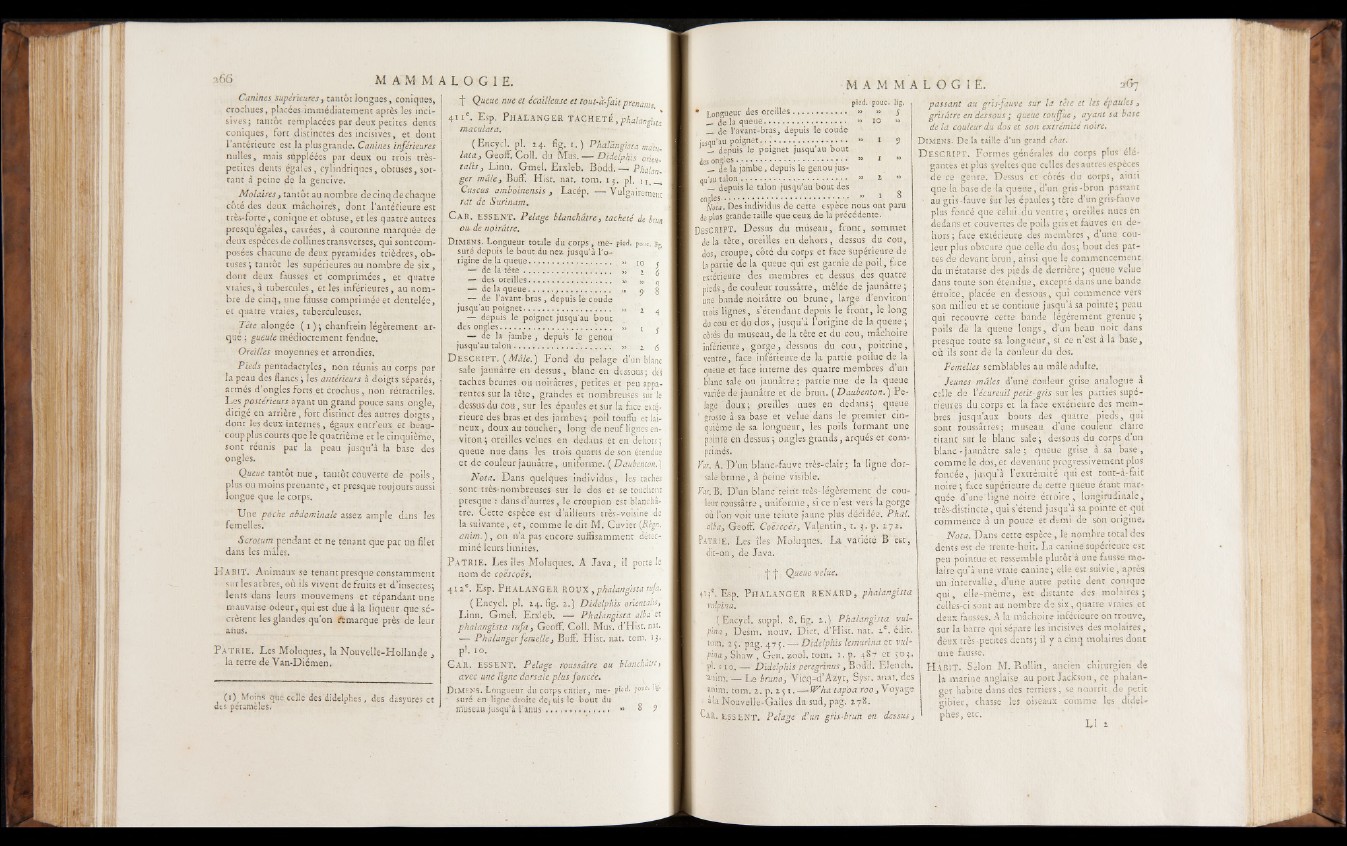 266 MAMMALOGIE.
Canines supérieures, tantôt longues, coniques,
crochues, placées immédiatement après les inci-
sives; tantôt remplacées par deux petites dents
coniques, fort distinctes des incisives, et dont
l'antérieure est la plus grande. Canines inférieures
nulles, mais suppléées par deux ou trois très-
petites dents égales, cylindriques, obtuses, sor-
tant à peine de la gencive.
Molaires, tantôt au nombre de cinq de chaque
côté des deux mâchoires, dont l'antérieure est
très-forte, conique et obtuse, et les quatre autres
presqu'égales, carrées, à couronne marquée de
deux espèces de collines transverses, qui sont com-
posées chacune de deux pyramides trièdres, ob-
tuses; tantôt les supérieures au nombre de six,
dont deux fausses et comprimées, et quatre
vraies, à tubercules, et les inférieures, au nom-
bre de cinq, une fausse comprimée et dentelée,
et quatre vraies, tuberculeuses.
Tête alongée (1); chanfrein légèrement ar-
qué; gueule médiocrement fendue.
Oreilles moyennes et arrondies.
Pieds pentadactyles, non réunis au corps par
la peau des flancs; les antérieurs à doigts séparés,
armés d'ongles forts et crochus, non rétractiles.
Les postérieurs ayant un grand pouce sans ongle,
dirigé en arrière, fort distinct des autres doigts,
dont les deux internes, égaux entr'eux et beau-
coup plus courts que le quatrième et le cinquième,
sont réunis par la peau jusqu'à la base des
ongles.
Queue tantôt nue, tantôt couverte de poils,
plus ou moins prenante, et presque toujours aussi
longue que le corps.
Une poche abdominale assez ample dans les
femelles.
Scrotum pendant et ne tenant que par un filet
dans les mâles.
HABIT. Animaux se tenant presque constamment
sur les arbres, où ils vivent de fruits et d'insectes;
lents dans leurs mouvemens et répandant une
mauvaise odeur, qui est due à la liqueur que sé-
crètent les glandes qu'on remarque près de leur
anus.
PATRIE. Les Moluques, la Nouvelle-Hollande,
la terre de Van-Diémen.
(1) Moins que celle des didelphes, des dasyures et
des péramèles.
† Queue nue et écailleuse et tout-à-fait prenante.
411e. Esp. PHALANGER TACHETÉ, phalangista
maculata.
(Encycl. pl. 24. fig. 1.) Phalangista macu-
lata, Geoff. Coll. du Mus. — Didelphis orien-
talis, Linn. Gmel. Erxleb. Bodd. — Phalan-
ger mâle, Buff. Hist. nat. tom. 13. pl. 11. —
Cuscus amboinensis, Lacép. — Vulgairement
rat de Surinam.
CAR. ESSENT. Pelage blanchâtre, tacheté de brun
ou de noirâtre.
DIMENS. Longueur totale du corps, me- pied. pouc. lig.
suré depuis le bout du nez jusqu'à l'o-
rigine de la queue.............. » 10 5
— de la tête ................ » 2 6
— des oreilles............... » » 9
— de la queue............... » 9 8
— de l'avant-bras, depuis le coude
jusqu'au poignet............... » 2 4
— depuis le poignet jusqu'au bout
des ongles................... » 1 5
— de la jambe, depuis le genou
jusqu'au talon................. » 2 6
DESCRIPT. (Mâle.) Fond du pelage d'un blanc
sale jaunâtre en dessus, blanc en dessous; des
taches brunes ou noirâtres, petites et peu appa-
rentes sur la tête, grandes et nombreuses sur le
dessus du cou, sur les épaules et sur la face exté-
rieure des bras et des jambes; poil touffu et lai-
neux, doux au toucher, long de neuf lignes en-
viron; oreilles velues en dedans et en dehors;
queue nue dans les trois quarts de son étendue
et de couleur jaunâtre, uniforme. (Daubenton.)
Nota. Dans quelques individus, les taches
sont très-nombreuses sur le dos et se touchent
presque; dans d'autres, le croupion est blanchâ-
tre. Cette espèce est d'ailleurs très-voisine de
la suivante, et, comme le dit M. Cuvier (Règn.
anim.), on n'a pas encore suffisamment déter-
miné leurs limites.
PATRIE. Les îles Moluques. A Java, il porte le
nom de coëscoës.
412e. Esp. PHALANGER ROUX, phalangista rufa.
(Encycl. pl. 24. fig. 2.) Didelphis orientalis,
Linn. Gmel. Erxleb. — Phalangista alba et
phalangista rufa, Geoff. Coll. Mus. d'Hist. nat.
— Phalanger femelle, Buff. Hist. nat. tom. 13.
pl. 10.
CAR. ESSENT. Pelage roussâtre ou blanchâtre,
avec une ligne dorsale plus foncée.
DIMENS. Longueur du corps entier, me- pied. pouc. lig.
suré en ligne droite depuis le bout du
museau jusqu'à l'anus ............ » 8 9
MAMMALOGIE. 267
pied. pouc. lig.
Longueur des oreilles............. » » 5
— de la queue................. » 10 »
— de l'avant-bras, depuis le coude
jusqu'au poignet............... » 1 9
— depuis le poignet jusqu'au bout
des ongles................... » 1 »
— de la jambe, depuis le genou jus-
qu'au talon................... » 2 »
— depuis le talon jusqu'au bout des
ongles....................... » 1 8
Nota. Des individus de cette espèce nous ont paru
de plus grande taille que ceux de la précédente.
DESCRIPT. Dessus du museau, front, sommet
de la tête, oreilles en dehors, dessus du cou,
dos, croupe, côté du corps et face supérieure de
la partie de la queue qui est garnie de poil, face
extérieure des membres et dessus des quatre
pieds, de couleur roussâtre, mêlée de jaunâtre;
une bande noirâtre ou brune, large d'environ
trois lignes, s'étendant depuis le front, le long
du cou et du dos, jusqu'à l'origine de la queue;
côtés du museau, de la tête et du cou, mâchoire
inférieure, gorge, dessous du cou, poitrine,
ventre, face inférieure de la partie poilue de la
queue et face interne des quatre membres d'un
blanc sale ou jaunâtre; partie nue de la queue
variée de jaunâtre et de brun. (Daubenton.) Pe-
lage doux; oreilles nues en dedans; queue
grosse à sa base et velue dans le premier cin-
quième de sa longueur, les poils formant une
pointe en dessus; ongles grands, arqués et com-
primés.
Var. A. D'un blanc-fauve très-clair; la ligne dor-
sale brune, à peine visible.
Var. B. D'un blanc teint très-légèrement de cou-
leur roussâtre, uniforme, si ce n'est vers la gorge
où l'on voit une teinte jaune plus décidée. Phal.
alba, Geoff. Coëscoës, Valentin, t. 3. p. 272.
PATRIE. Les îles Moluques. La variété B est,
dit-on, de Java.
†† Queue velue.
413e. Esp. PHALANGER RENARD, phalangista
vulpina.
(Encycl. suppl. 8. fig. 2.) Phalangista vul-
pina, Desm. nouv. Dict. d'Hist. nat. 2e. édit.
tom. 25. pag. 475. — Didelphis lemurina et vul-
pina, Shaw, Gen. zool. tom. 1. p. 487 et 503,
pl. 110. — Didelphis peregrinus, Bodd. Elench.
anim. — Le bruno, Vicq-d'Azyr, Syst. anat. des
anim. tom. 2. p. 251. — Wha tapoa roo, Voyage
à la Nouvelle-Galles du sud, pag. 278.
CAR. ESSENT. Pelage d'un gris-brun en dessus,
passant au gris-fauve sur la tête et les épaules,
grisâtre en dessous; queue touffue, ayant sa base
de la couleur du dos et son extrémité noire.
DIMENS. De la taille d'un grand chat.
DESCRIPT. Formes générales du corps plus élé-
gantes et plus sveltes que celles des autres espèces
de ce genre. Dessus et côtés du corps, ainsi
que la base de la queue, d'un gris-brun passant
au gris-fauve sur les épaules; tête d'un gris-fauve
plus foncé que celui du ventre; oreilles nues en
dedans et couvertes de poils gris et fauves en de-
hors; face extérieure des membres, d'une cou-
leur plus obscure que celle du dos; bout des pat-
tes de devant brun, ainsi que le commencement
du métatarse des pieds de derrière; queue velue
dans toute son étendue, excepté dans une bande
étroite, placée en dessous, qui commence vers
son milieu et se continue jusqu'à sa pointe; peau
qui recouvre cette bande légèrement grenue;
poils de la queue longs, d'un beau noir dans
presque toute sa longueur, si ce n'est à la base,
où ils sont de la couleur du dos.
Femelles semblables au mâle adulte.
Jeunes mâles d'une couleur grise analogue à
celle de l'écureuil petit-gris sur les parties supé-
rieures du corps et la face extérieure des mem-
bres jusqu'aux bouts des quatre pieds, qui
sont roussâtres; museau d'une couleur claire
tirant sur le blanc sale; dessous du corps d'un
blanc-jaunâtre sale; queue grise à sa base,
comme le dos, et devenant progressivement plus
foncée, jusqu'à l'extrémité qui est tout-à-fait
noire; face supérieure de cette queue étant mar-
quée d'une ligne noire étroite, longitudinale,
très-distincte, qui s'étend jusqu'à sa pointe et qui
commence à un pouce et demi de son origine.
Nota. Dans cette espèce, le nombre total des
dents est de trente-huit. La canine supérieure est
peu pointue et ressemble plutôt à une fausse mo-
laire qu'à une vraie canine; elle est suivie, après
un intervalle, d'une autre petite dent conique
qui, elle-même, est distante des molaires;
celles-ci sont au nombre de six, quatre vraies et
deux fausses. A la mâchoire inférieure on trouve,
sur la barre qui sépare les incisives des molaires,
deux très-petites dents; il y a cinq molaires dont
une fausse.
HABIT. Selon M. Rollin, ancien chirurgien de
la marine anglaise au port Jackson, ce phalan-
ger habite dans des terriers, se nourrit de petit
gibier, chasse les oiseaux comme les didel-
phes, etc.
Ll 2